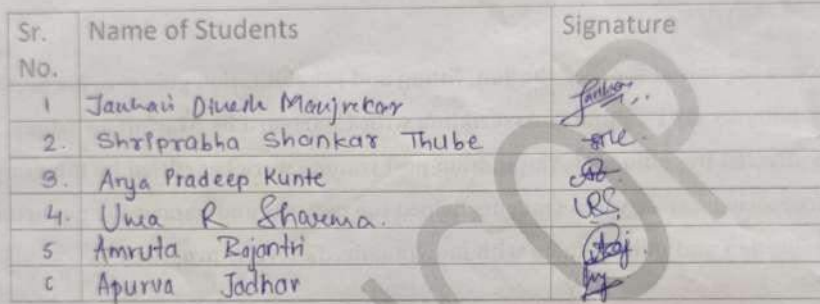 Sr. No. Name of Students Signature
1 Janhavi Dinesh Manjrekar
2. Shriprabha Shankar Thube
3. Arya Pradeep Kunte
4. Uma R Sharma. URS.
5 Amruta Rajantri
6 Apurva Jadhav